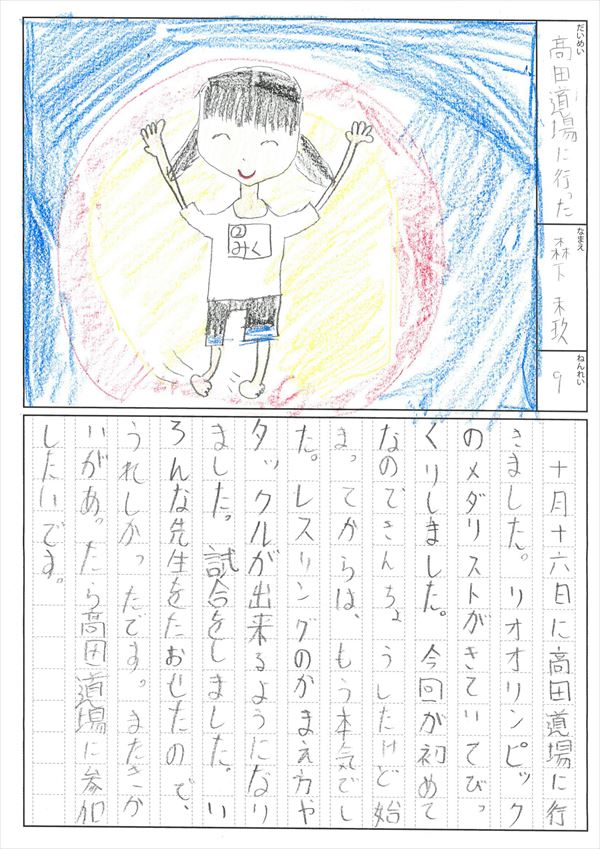 だいめい
高田道場に行った
なまえ
森下 未玖
ねんれい
9
②
みく
十月十六日に高田道場に行
きました。リオオリンピック
のメダリストがきていてびっ
くりしました。今回が初めて
なのできんちょうしたけど始
まってからは、もう本気でし
た。レスリングのかまえ方や
タックルが出来るようになり
ました。試合をしました。い
ろんな先生をたおせたので、
うれしかったです。またきか
いがあったら高田道場に参加
したいです。